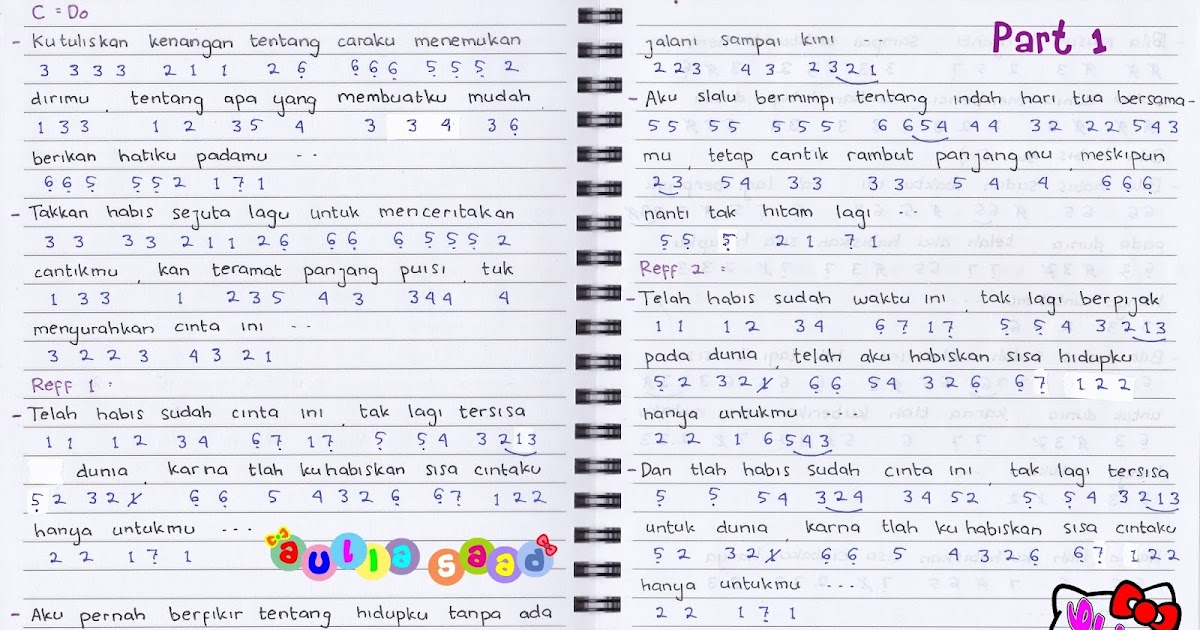 C = Do
- Kutuliskan kenangan tentang caraku menemukan
3 3 3 3 2 1 1 2 6̣ 6̣ 6̣ 6̣ 5̣ 5̣ 5̣ 2
dirimu, tentang apa yang membuatku mudah
1 3 3 1 2 3 5 4 3 3 4 3 6̣
berikan hatiku padamu - -
6̣ 6̣ 5̣ 5̣ 5̣ 2 1 7̣ 1
- Takkan habis sejuta lagu untuk menceritakan
3 3 3 3 2 1 1 2 6̣ 6̣ 6̣ 6̣ 5̣ 5̣ 5̣ 2
cantikmu, kan teramat panjang puisi, tuk
1 3 3 1 2 3 5 4 3 3 4 4 4
menyurahkan cinta ini - -
3 2 2 3 4 3 2 1
Reff 1 :
- Telah habis sudah cinta ini, tak lagi tersisa
1 1 1 2 3 4 6̣ 7̣ 1 7̣ 5̣ 5̣ 4 3 2 1 3
dunia, karna tlah kuhabiskan sisa cintaku
5̣ 2 3 2 1 6̣ 6̣ 5̣ 4 3 2 6̣ 6̣ 7̣ 1 2 2
hanya untukmu - - -
2 2 1 7̣ 1
aulia saad
- Aku pernah berfikir tentang hidupku tanpa ada
Part 1
jalani sampai kini - -
2 2 3 4 3 2 3 2 1
- Aku slalu bermimpi tentang indah hari tua bersama-
5 5 5 5 5 5 5 6 6 5 4 4 4 3 2 2 2 5 4 3
mu, tetap cantik rambut panjangmu, meskipun
2 3 5 4 3 3 3 3 5 4 4 6̣ 6̣ 6̣
nanti tak hitam lagi - -
5̣ 5̣ 5̣ 2 1 7̣ 1
Reff 2 :
- Telah habis sudah waktu ini, tak lagi berpijak
1 1 1 2 3 4 6̣ 7̣ 1 7̣ 5̣ 5̣ 4 3 2 1 3
pada dunia, telah aku habiskan sisa hidupku
5̣ 2 3 2 1 6̣ 6̣ 5 4 3 2 6̣ 6̣ 7̣ 1 2 2
hanya untukmu - - - -
2 2 1 6 5 4 3
- Dan tlah habis sudah cinta ini, tak lagi tersisa
5̣ 5̣ 5 4 3 2 4 3 4 5 2 5̣ 5̣ 4 3 2 1 3
untuk dunia, karna tlah kuhabiskan sisa cintaku
5̣ 2 3 2 1 6̣ 6̣ 5 4 3 2 6̣ 6̣ 7̣ 1 2 2
hanya untukmu - - - -
2 2 1 7̣ 1